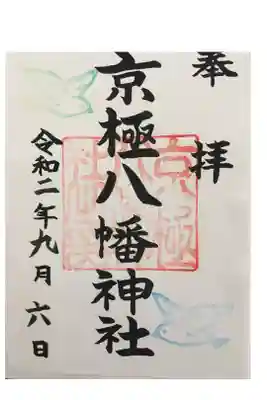 奉拝
京極八幡神社
令和二年九月六日